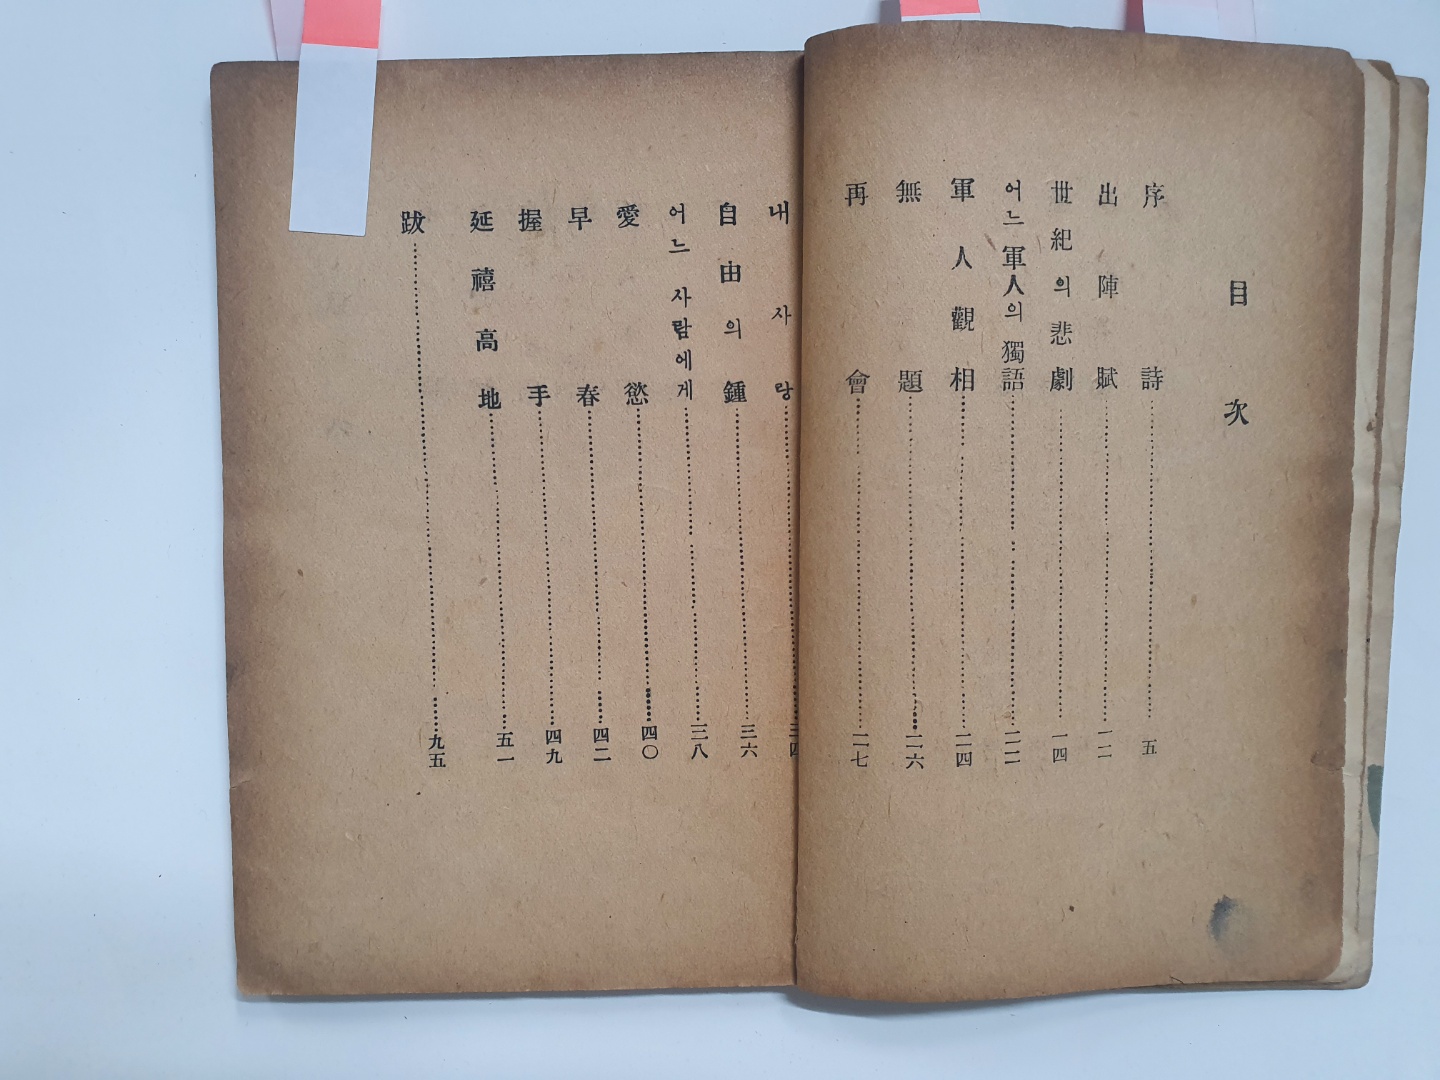 目次
序詩 五
出陣賦 一二
世紀의悲劇 一四
어느軍人의獨語 二二
軍人觀相 二四
無題 二六
再會 二七
내사랑 三四
自由의鍾 三六
어느 사람에게 三八
愛慾 四〇
早春 四二
握手 四九
延禧高地 五一
跋 九五